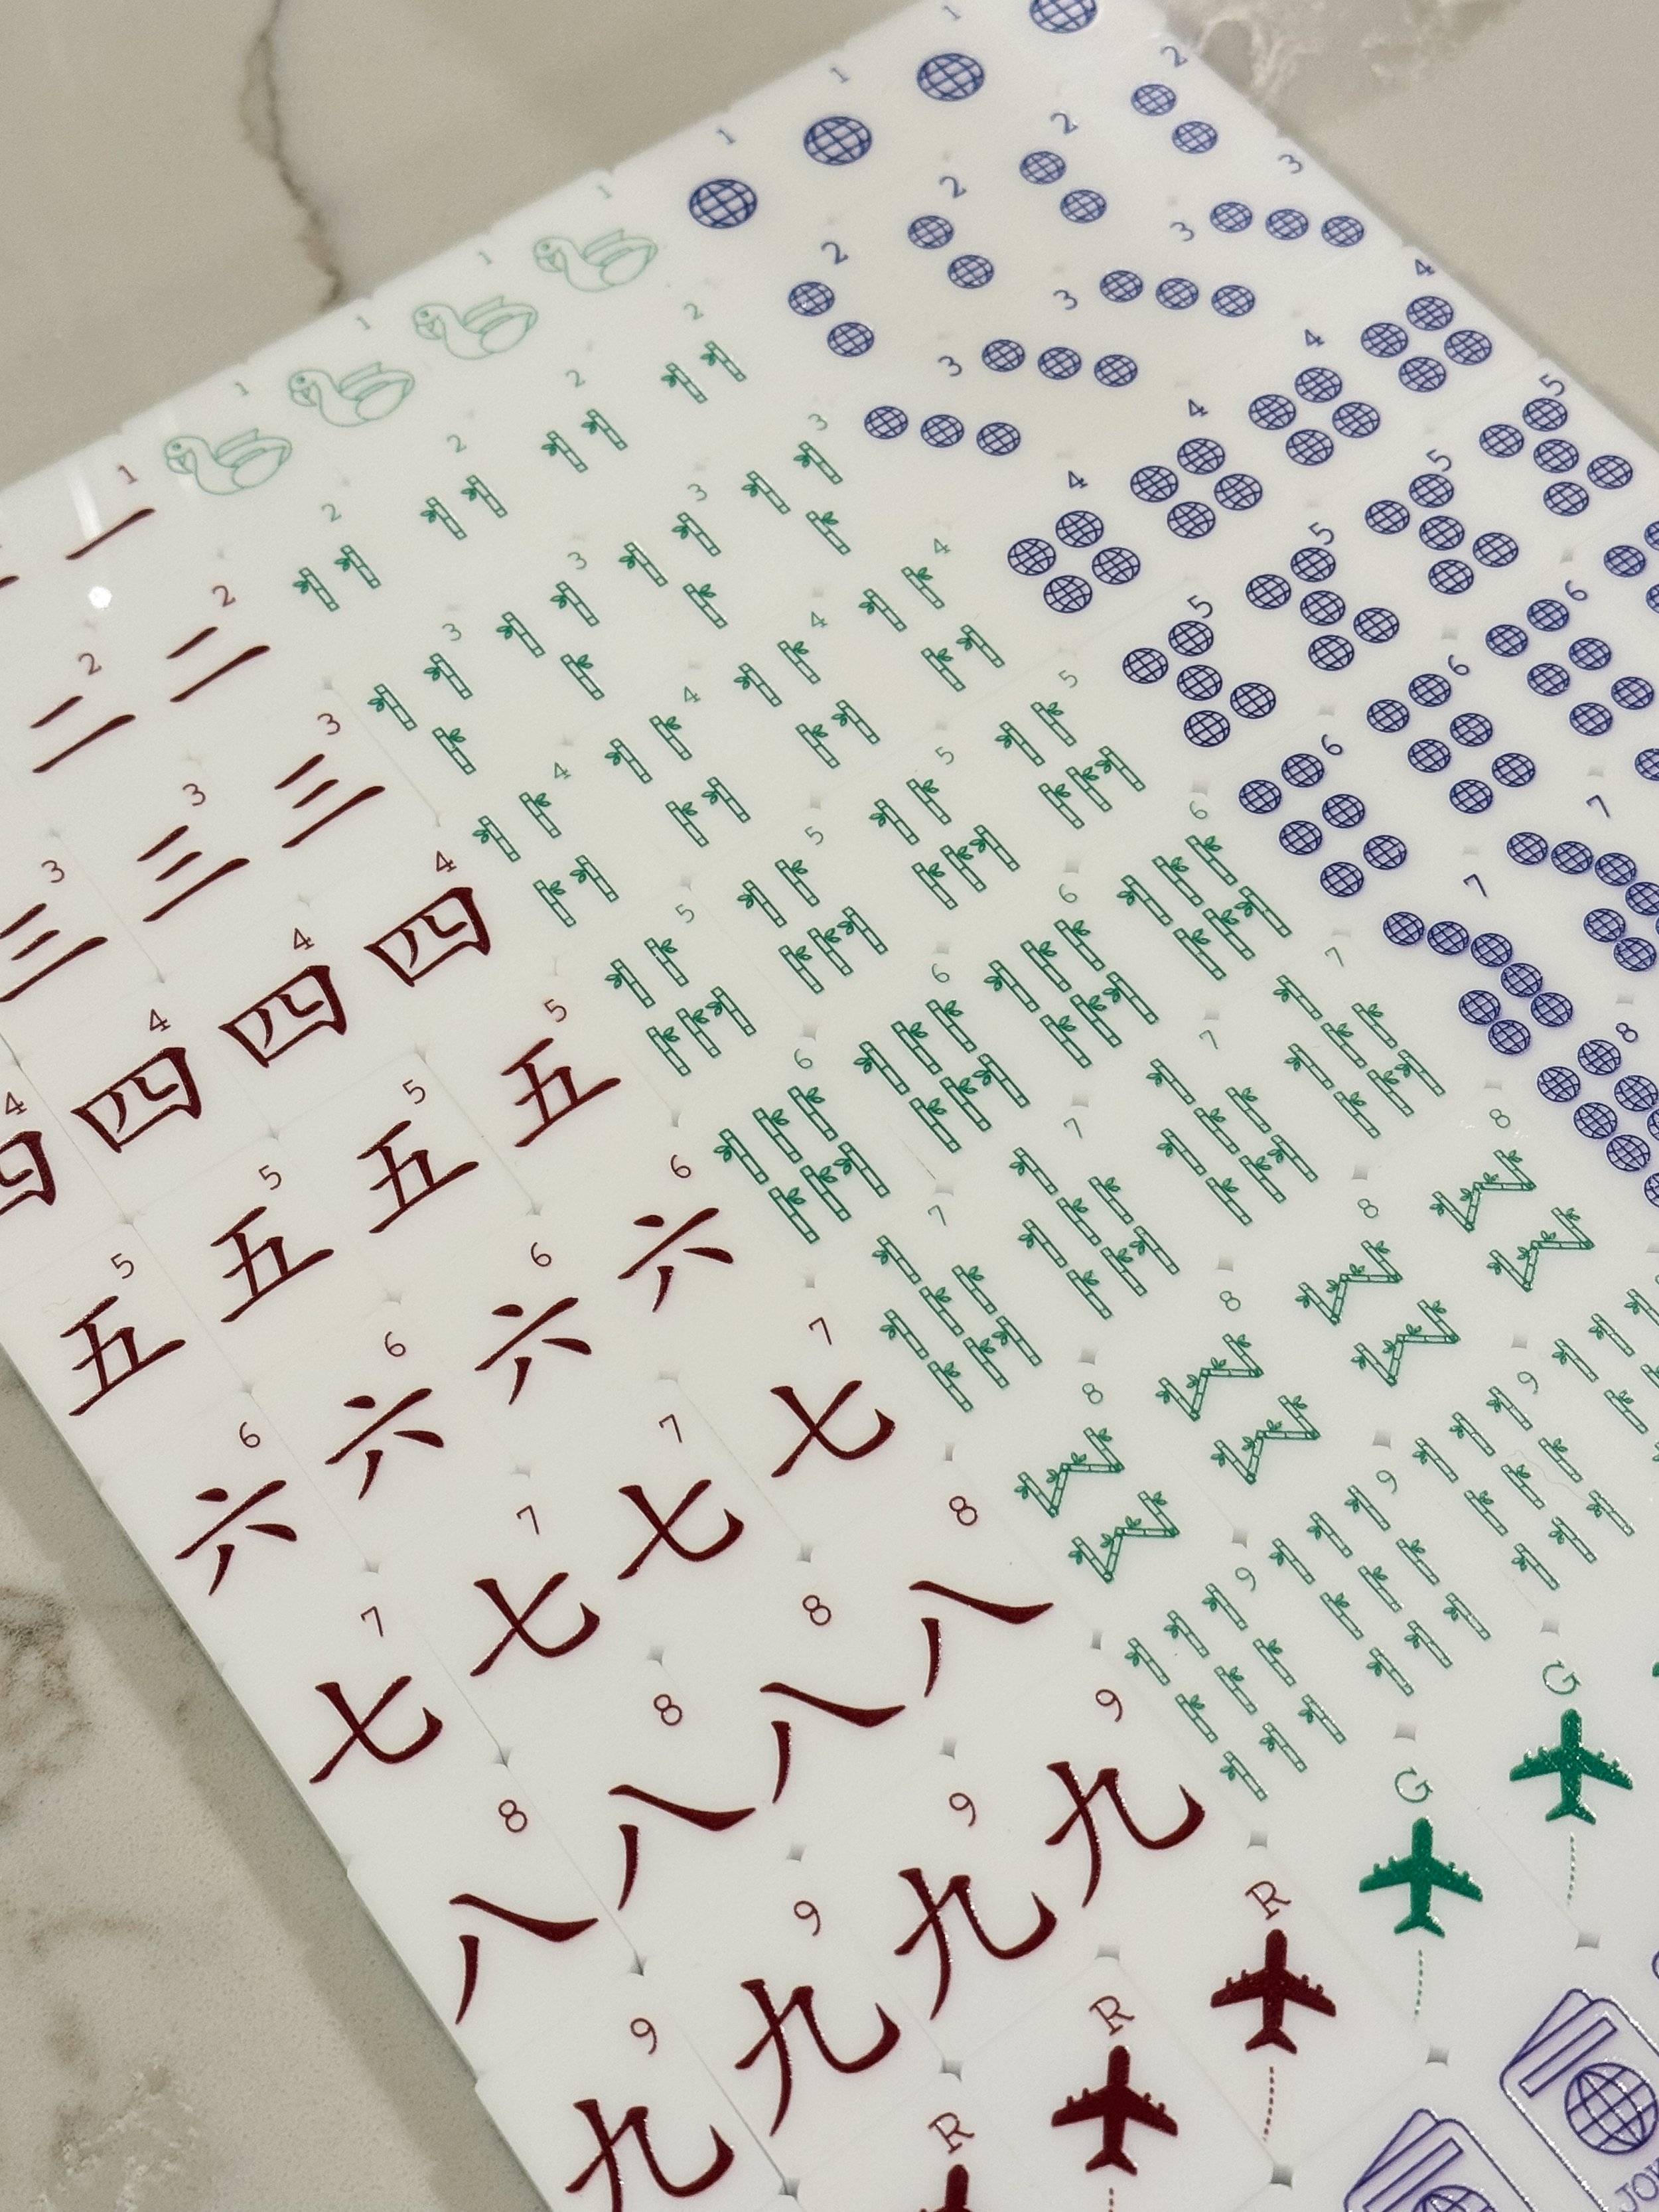 1 1 1 1 1 1 1 1
一
2 2 2 2 2 2 2 2 2 2
二 二
3 3 3 3 3 3 3 3 3 3 3
三 三 三
4 4 4 4 4 4 4 4 4 4 4 4
四 四 四 四
5 5 5 5 5 5 5 5 5 5 5 5
五 五 五 五
6 6 6 6 6 6 6 6 6 6 6
六 六 六 六
7 7 7 7 7 7 7 7 7 7
七 七 七 七
8 8 8 8 8 8 8 8 8
八 八 八 八
9 9 9 9 9 9 9
九 九 九 九
R R R G G